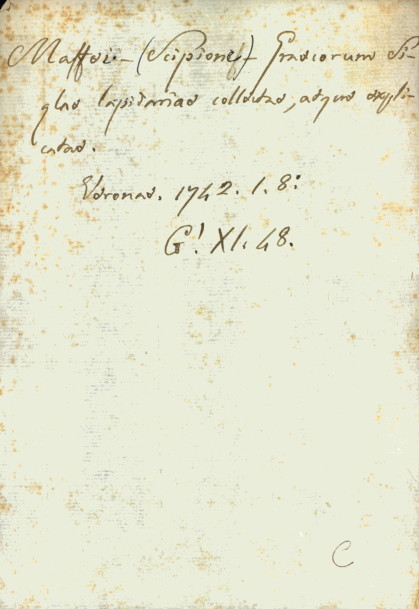 Maffei - (Scipione) - Graecorum Si-
glae lapidariae collectae, atque expli-
catae.
Veronae. 1742. 1. 8:
G! XI. 48.
C